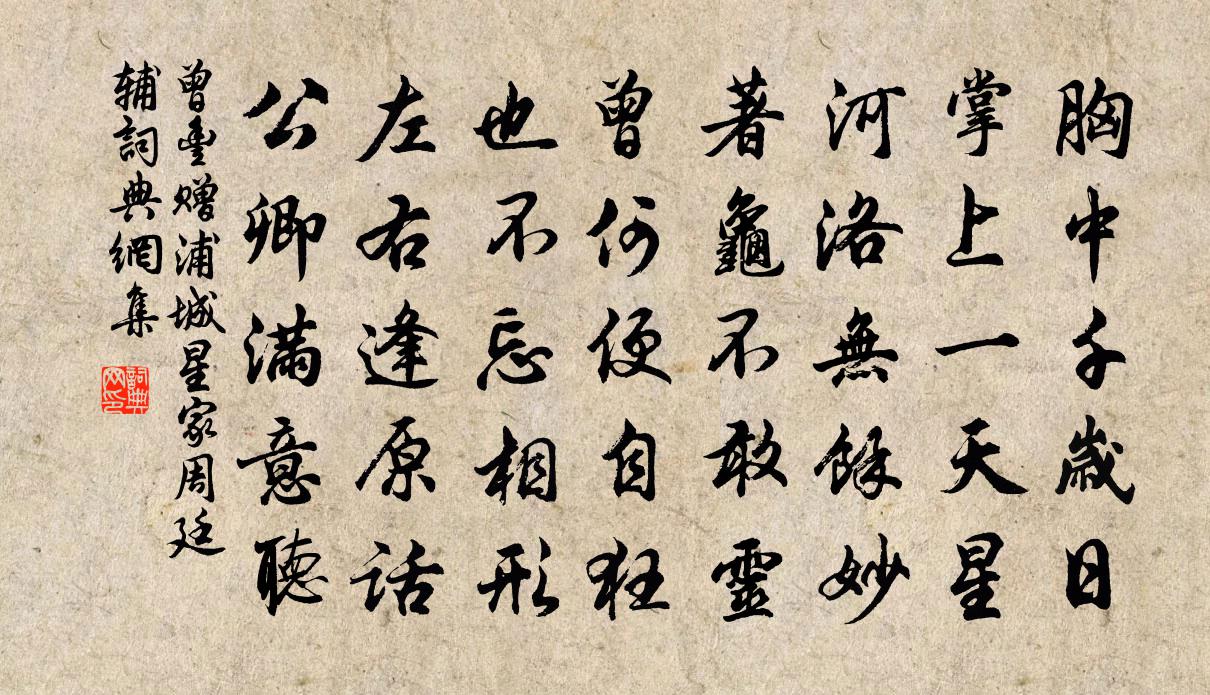 胸中千歲日
掌上一天星
河洛無餘妙
著龜不敢靈
曾何便自狂
也不忘相形
左右逢原話
公卿滿意聽
曾豊赠浦城星家周廷
辅詞典網集
詞典
网印